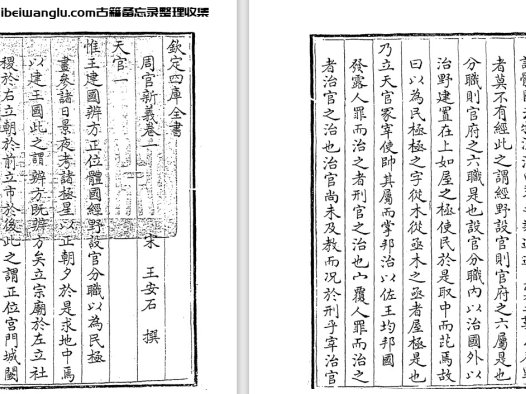 ibeiwanglu.com古籍备忘录整理收集
欽定四庫全書
周官新義卷一
宋 王安石 撰
天官一
惟王建國辨方正位體國經野設官分職以為民極
晝參諸日景夜考諸極星以正朝夕於是求地中焉
以建王國此之謂辨方既辨方矣立宗廟於左立社
稷於右立朝於前立市於後此之謂正位宮門城闕
者莫不有經此之謂經野設官則官府之六屬是也
分職則官府之六職是也設官分職內以治國外以
治野建置在上如屋之極使民於是取中而芘焉故
曰以為民極極之字從木從亟木之亟者屋極是也
乃立天官冢宰使帥其屬而掌邦治以佐王均邦國
發露人罪而治之者刑官之治也宀覆人罪而治之
者治官之治也治官尚未及教而况於刑乎宰治官